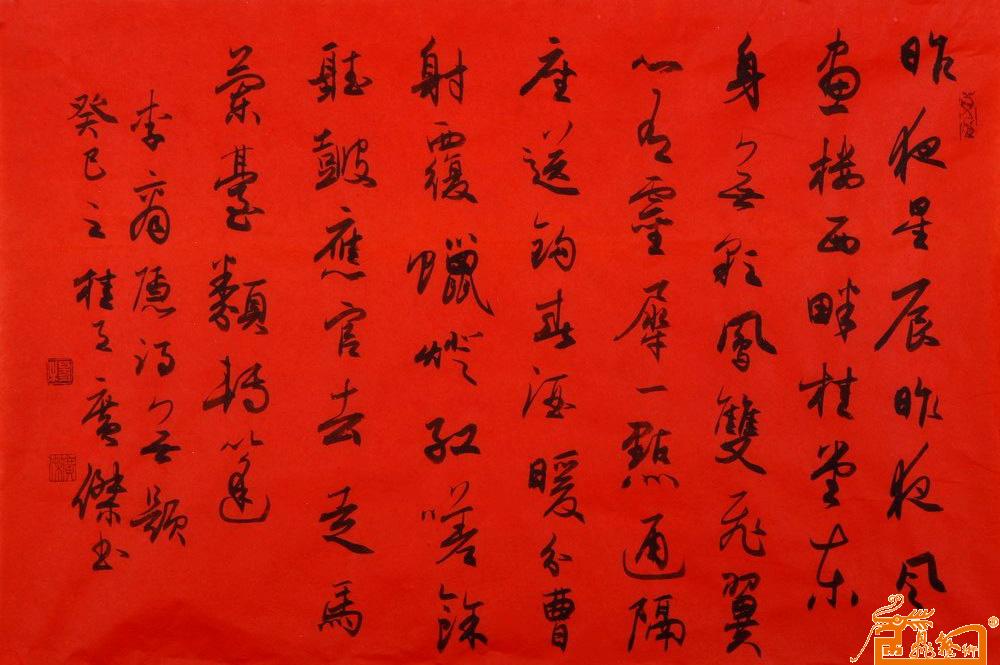 昨夜星辰昨夜風
畫樓西畔桂堂東
身無彩鳳雙飛翼
心有靈犀一點通隔
座送鉤春酒暖分曹
射覆蠟燈紅嗟餘
聽鼓應官去走馬
蘭臺類轉蓬
李商隱詩無題
癸巳之桂月廣傑書